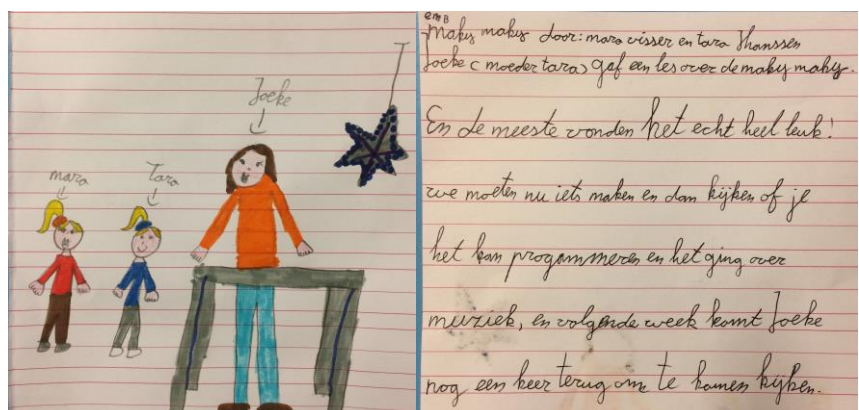 Joeke
mara
Tara
em B
Maky maky door: mara visser en tara Thanssen
Joeke (moeder tara) gaf een les over de maky maky.
En de meeste vonden het echt heel leuk!
we moeten nu iets maken en dan kijken of je
het kan progammeren en het ging over
muziek, en volgende week komt Joeke
nog een keer terug om te komen kijken.